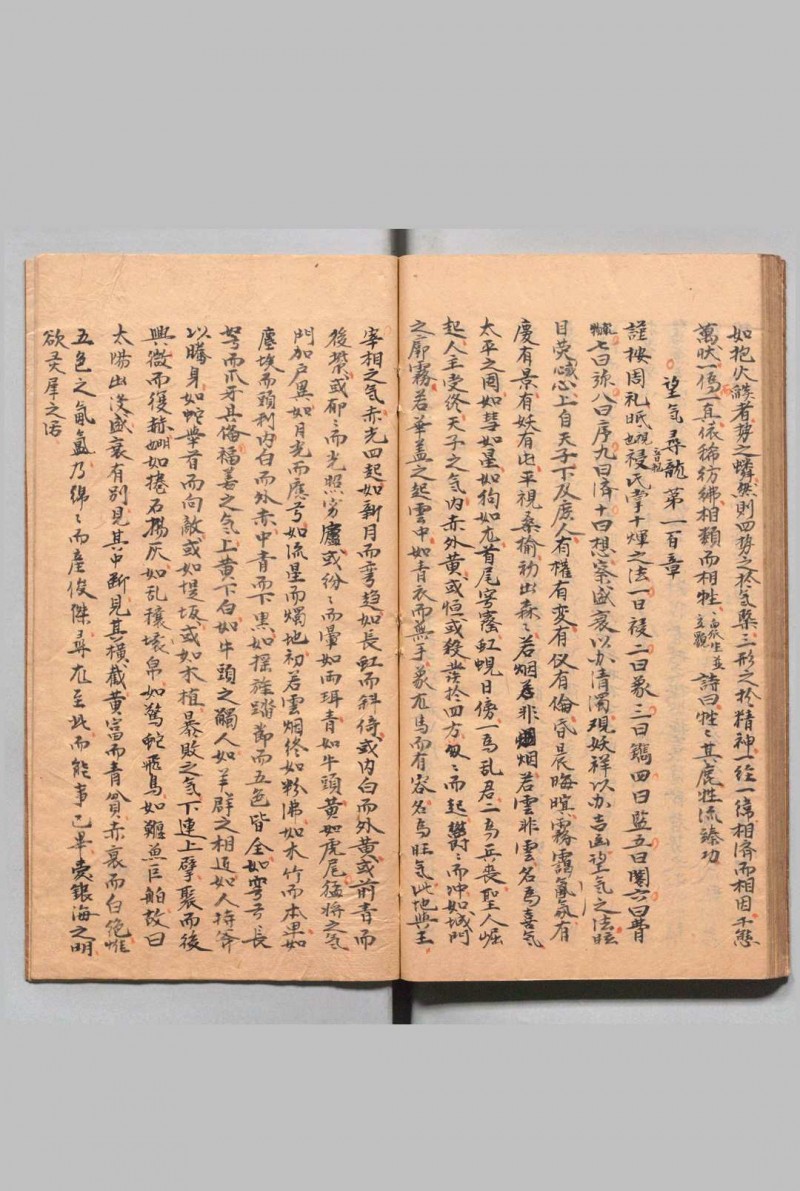 如抱火緂者势之燐然則四势之於气槩三形之於精神一經一緯相濟而相因千態
萬狀一偽一真依稀彷彿相類而相牲詩曰牲〻其鹿牲流臻功
望气尋龍第一百章
謹按周礼眡祲氏掌十煇之法一曰祲二曰象三曰鑴四曰監五曰闇六曰瞢
七曰弥八曰序九曰濟十曰想察盛衰以办清濁現妖祥以办吉凶望气之法眩
目荧心上自天子下及庶人有權有变有仪有倫昏晨晦暄霧靄氤氲有
慶有景有妖有出平視桑榆初出森〻若烟非烟若雲非雲名為喜气
太平之周如彗如星如狗如尤首尾穹窿虹蜺日傍一為乱君二為兵喪聖人崛
起人主受终天子之气内赤外黄或恒或殺發於四方匈〻而起欝〻而冲如城門
之廓霧若華盖之起雲中如青衣而無手象龙馬而有容名為旺气此地興王
宰相之气赤光四起如新月而弯趋如長虹而斜倚或内白而外黄或前青而
後縈或郁〻而光照穷廬或纷〻而暈如两珥青如牛頭黄如虎尾猛将之气
門加户異如月光而應弓如流星而燭地初若雲烟终如粉沸如木竹而本黑如
塵埃而頭利内白而外赤中青而下黑如摇旌踏節而五色皆全如弯弓長
弩而爪牙具備福善之气上黄下白如牛頭之觸人如羊群之相近如人持斧
以騰身如蛇举首而向敵或如堤坂或如木植暴敗之气下連上擘聚而後
興微而復赫如捲石揚灰如乱穰壊帛如驚蛇飛鳥如雞魚巨船故曰
太陽出没盛衰有别見其中断見其横截黄富而青貧赤衰而白絶惟
五色之氤氲乃绵〻而産俊傑尋龙至此而能事已畢衒銀海之明
欲灵犀之活